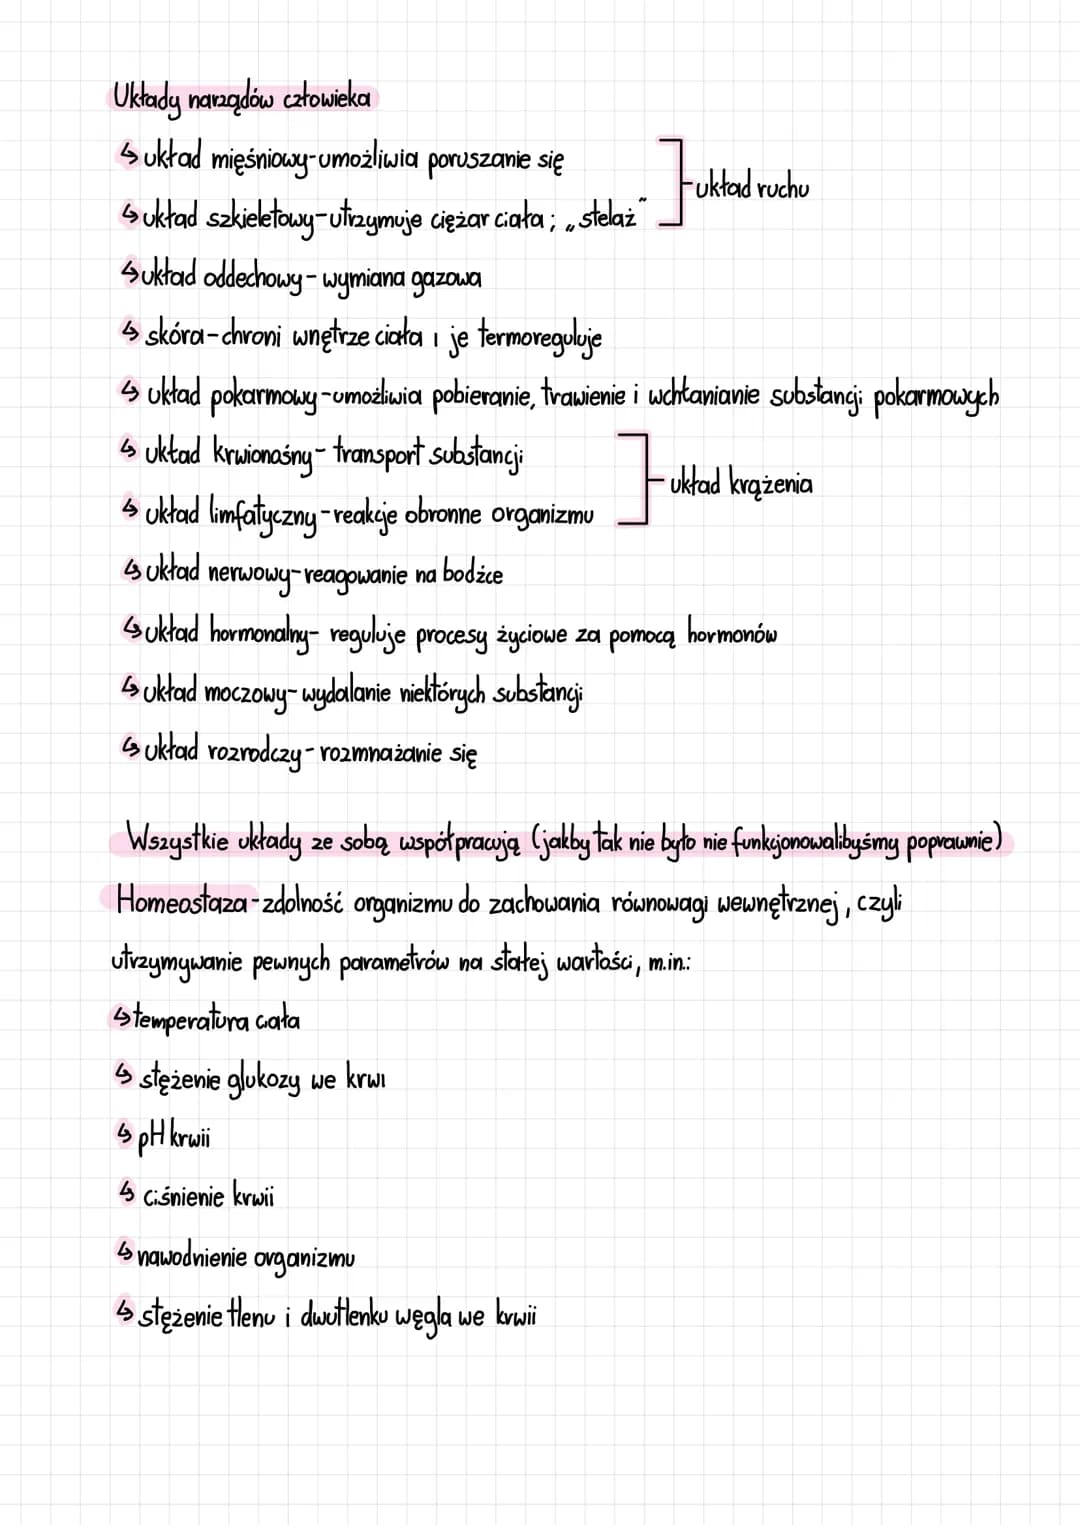 Układy narządów człowieka
↳ układ mięśniowy-umożliwia poruszanie się
↳ układ szkieletowy-utrzymuje ciężar ciała; „stelaż”
-układ ruchu
↳ układ oddechowy-wymiana gazowa
↳ skóra-chroni wnętrze ciała i je termoreguluje
↳ układ pokarmowy-umożliwia pobieranie, trawienie i wchłanianie substancji pokarmowych
↳ układ krwionośny-transport substancji
↳ układ limfatyczny-reakcje obronne organizmu
-układ krążenia
↳ układ nerwowy-reagowanie na bodźce
↳ układ hormonalny-reguluje procesy życiowe za pomocą hormonów
↳ układ moczowy-wydalanie niektórych substancji
↳ układ rozrodczy-rozmnażanie się
Wszystkie układy ze sobą współpracują (jakby tak nie było nie funkcjonowalibyśmy poprawnie)
Homeostaza-zdolność organizmu do zachowania równowagi wewnętrznej, czyli
utrzymywanie pewnych parametrów na stałej wartości, m.in.:
↳ temperatura ciała
↳ stężenie glukozy we krwi
↳ pH krwii
↳ ciśnienie krwii
↳ nawodnienie organizmu
↳ stężenie tlenu i dwutlenku węgla we krwii